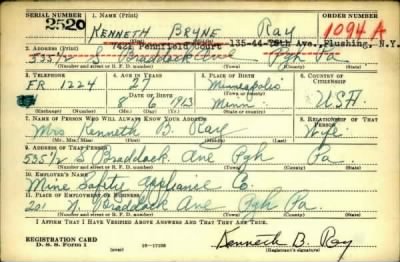 SERIAL NUMBER
1. NAME (Print)
ORDER NUMBER
2520
KENNETH BRYNE Ray
1094 A
(First) (Middle) (Last)
7421 Pennfield Court 135-44- Ave., Flushing, N.Y.
2. ADDRESS (Print)
535 1/2 S Braddock Ave Pgh Pa
(Number and street or R. F. D. number) (Town) (County) (State)
3. TELEPHONE
4. AGE IN YEARS
5. PLACE OF BIRTH
6. COUNTRY OF CITIZENSHIP
FR 1224
27
Minneapolis
DATE OF BIRTH
(Town or county)
8 6 1913
Minn
USA
(Exchange) (Number)
(Mo.) (Day) (Yr.)
(State or country)
7. NAME OF PERSON WHO WILL ALWAYS KNOW YOUR ADDRESS
8. RELATIONSHIP OF THAT PERSON
Mrs Kenneth B. Ray
Wife
(Mr., Mrs., Miss) (First) (Middle) (Last)
9. ADDRESS OF THAT PERSON
535 1/2 S Braddock Ave Pgh Pa.
(Number and street or R. F. D. number) (Town) (County) (State)
10. EMPLOYER'S NAME
Mine Safety Appliance Co.
11. PLACE OF EMPLOYMENT OR BUSINESS
201 N. Braddock Ave Pgh Pa.
(Number and street or R. F. D. number) (Town) (County) (State)
I AFFIRM THAT I HAVE VERIFIED ABOVE ANSWERS AND THAT THEY ARE TRUE.
REGISTRATION CARD
D. S. S. Form 1
(over)
16—17105
Kenneth B. Ray
(Registrant's signature)